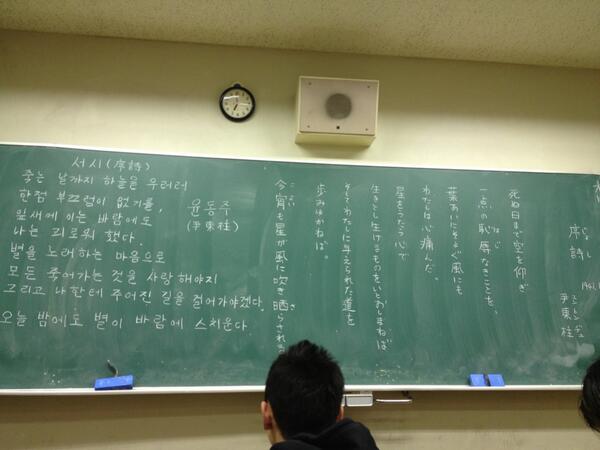 서시(序詩)
죽는 날까지 하늘을 우러러
한점 부끄럼이 없기를,
잎새에 이는 바람에도
나는 괴로워 했다.
별을 노래하는 마음으로
모든 죽어가는 것을 사랑해야지
그리고 나한테 주어진 길을 걸어가야겠다.
오늘 밤에도 별이 바람에 스치운다.
윤동주
(尹東柱)
序詩
じょし
尹東柱
ユンドンヂュ
死ぬ日まで空を仰ぎ
一点の恥辱なきことを、
はじ
葉あいにそよぐ風にも
わたしは心痛んだ。
星をうたう心で
生きとし生けるものをいとおしまねば
そしてわたしに与えられた道を
歩みゆかねば。
今宵も星が風に吹き晒らされる
こよい